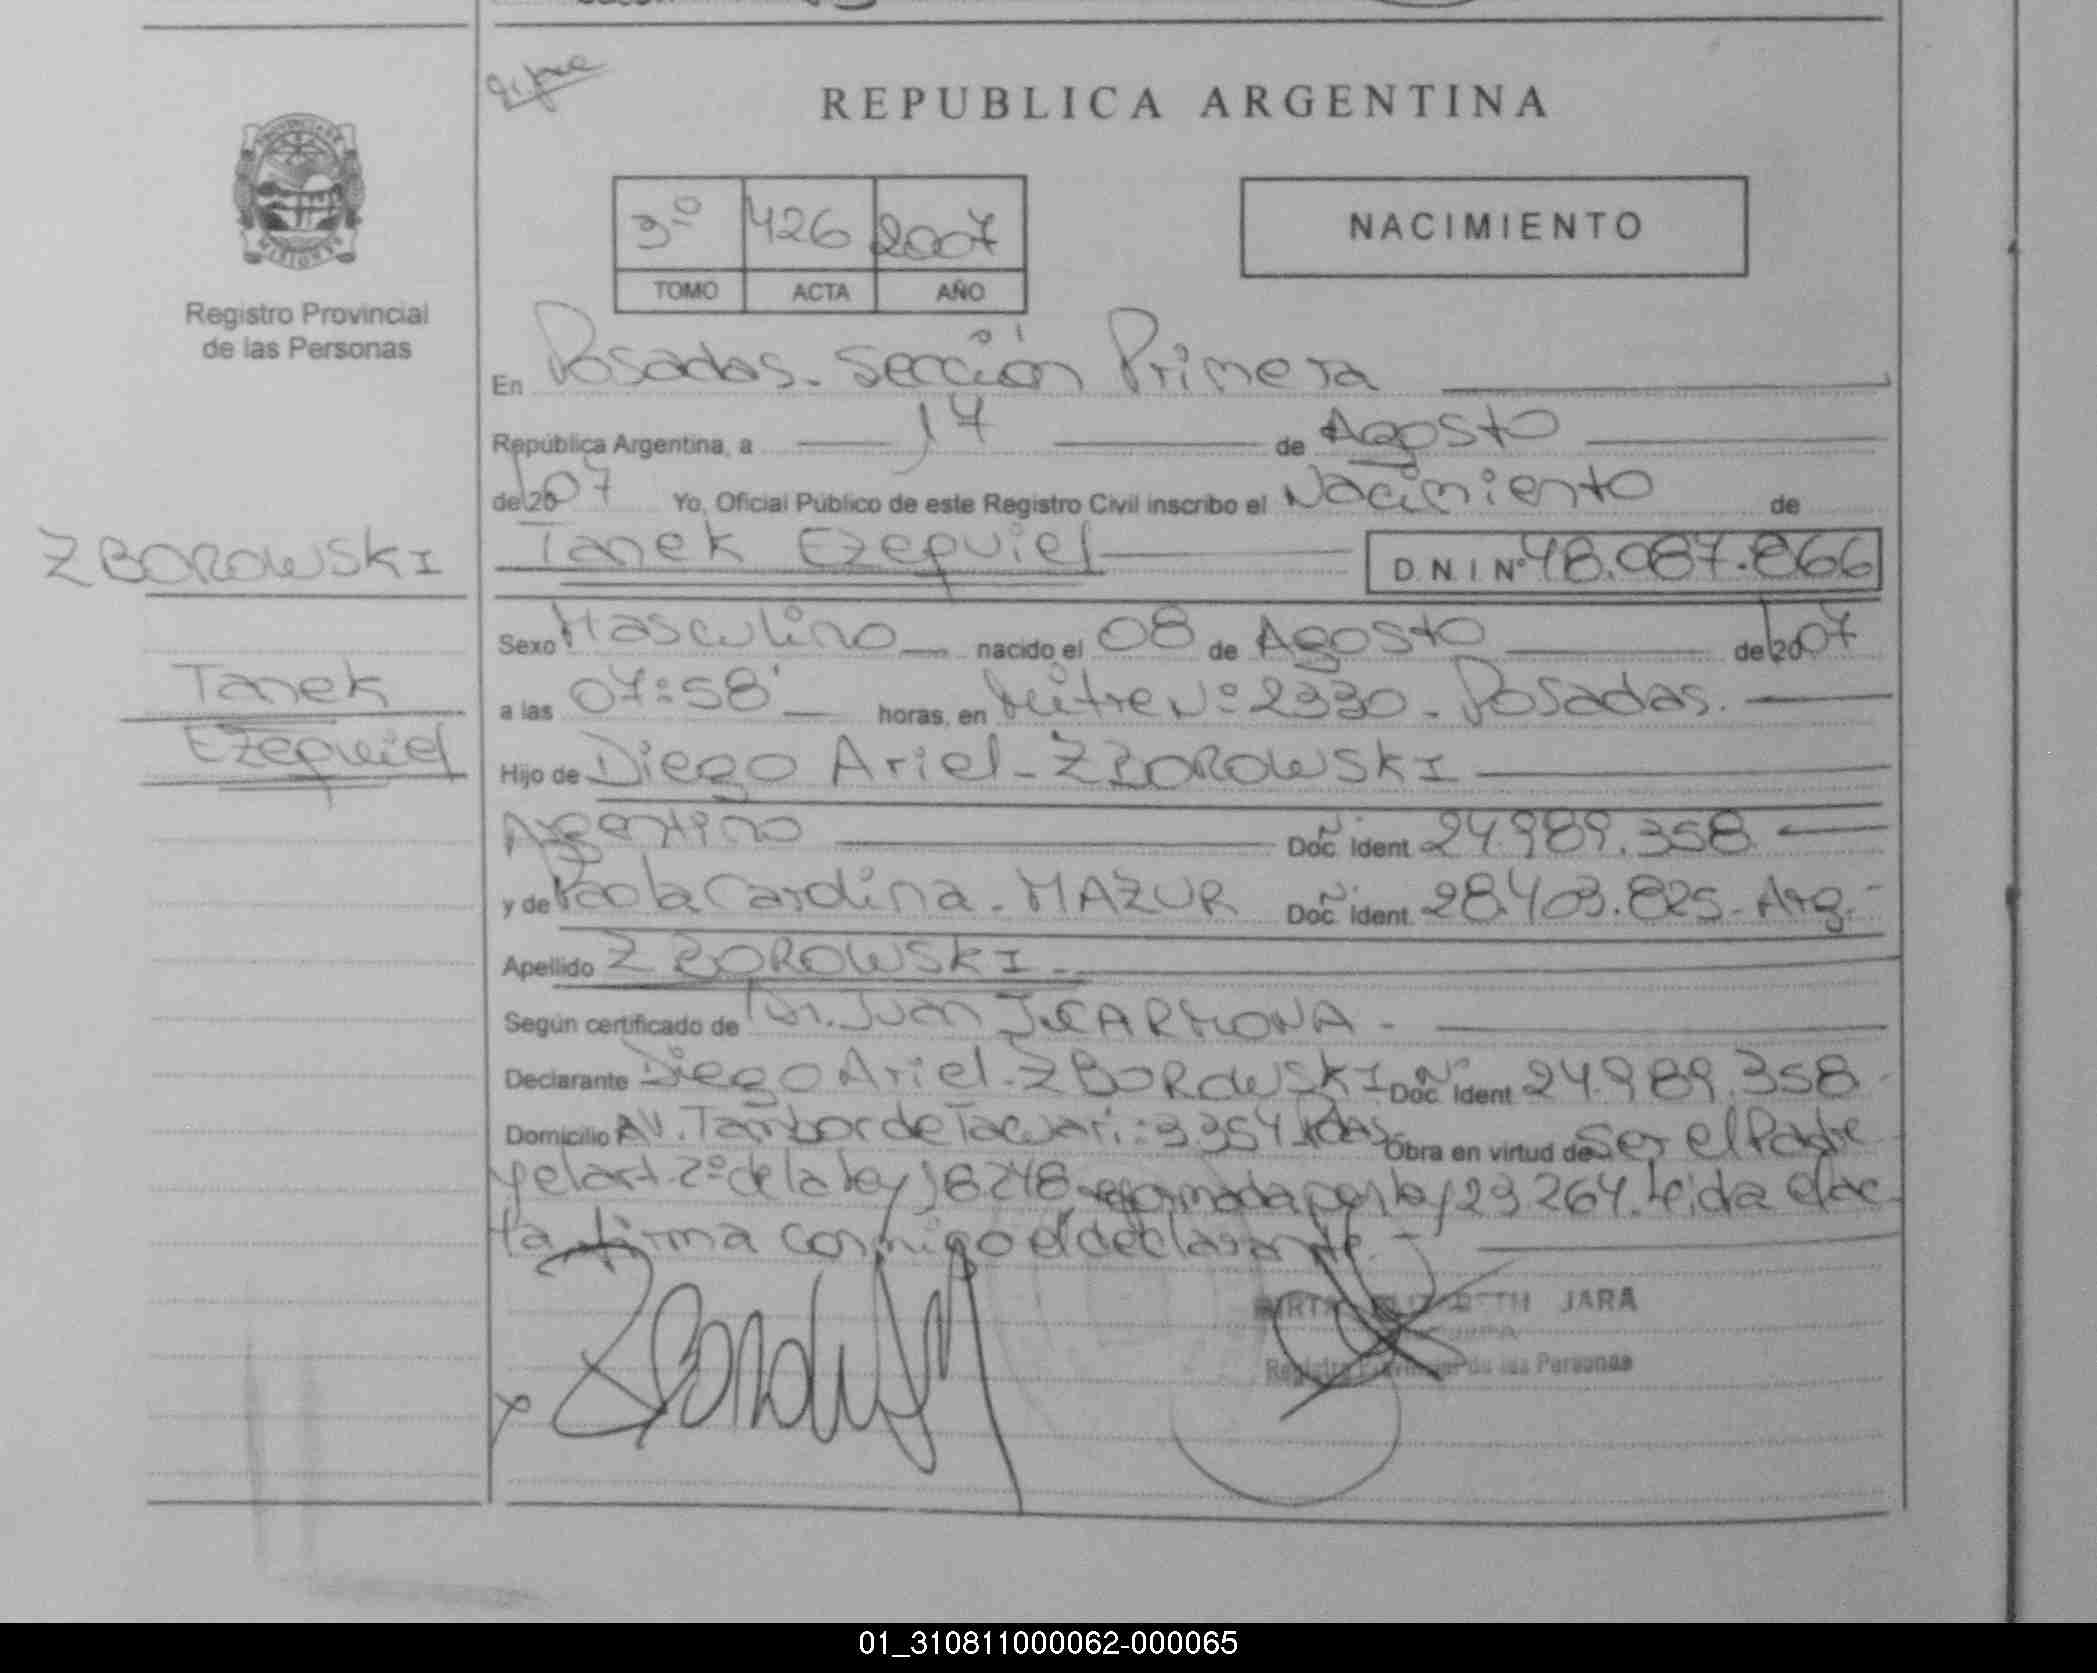 REPUBLICA ARGENTINA
PROVINCIA DE
MISIONES
Registro Provincial
de las Personas
3º 426 2007
TOMO ACTA AÑO
NACIMIENTO
En Posadas. Sección Primera
República Argentina, a 17 de Agosto
de 2007 Yo, Oficial Público de este Registro Civil inscribo el Nacimiento de
Tanek Ezequiel D.N.I Nº 48.087.866
ZBOROWSKI
Tanek
Ezequiel
Sexo Masculino nacido el 08 de Agosto de 2007
a las 07:58' horas, en Mitre Nº 2330. Posadas.
Hijo de Diego Ariel - ZBOROWSKI
Argentino Doc. Ident. 24.989.358
y de Paola Carolina. MAZUR Doc. Ident. 28.403.825. Arg.-
Apellido ZBOROWSKI.
Según certificado de Dr. Juan J. CARMONA.
Declarante Diego Ariel. ZBOROWSKI Doc. Ident. 24.989.358
Domicilio AV. Tambor de Tacuari: 3354 Pdas. Obra en virtud de Ser el Padre
y el art. 2º de la ley 18248 reformada por ley 23264. Leida el ac
ta firma conmigo el declarante.
MIRTA ELIZABETH JARA
Registro Provincial de las Personas
01_310811000062-000065